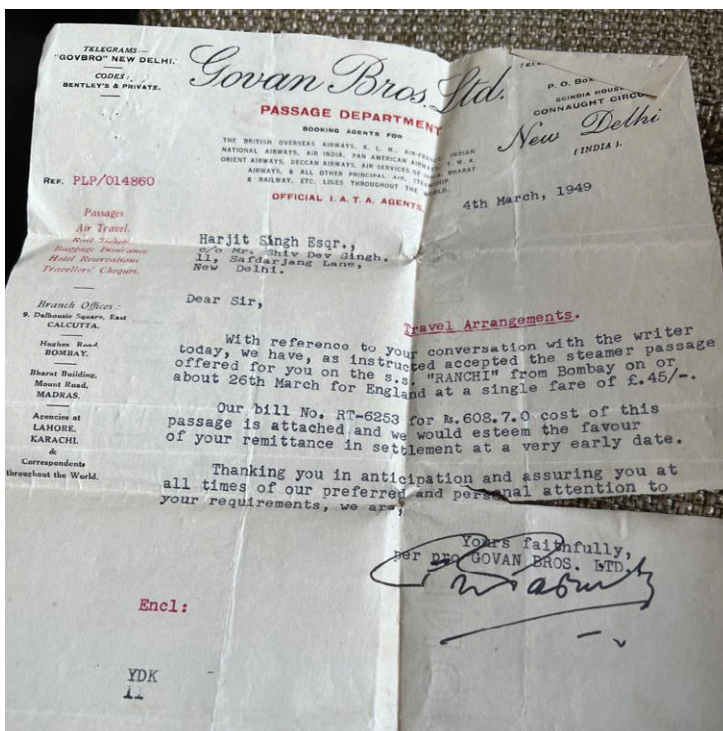 TELEGRAMS:—
"GOVBRO" NEW DELHI.
CODES:
BENTLEY'S & PRIVATE.
Govan Bros. Ltd.
PASSAGE DEPARTMENT
BOOKING AGENTS FOR
THE BRITISH OVERSEAS AIRWAYS, K. L. M., AIR-FRANCE, INDIAN
NATIONAL AIRWAYS, AIR INDIA, PAN AMERICAN AIRWAYS, T. W. A.
ORIENT AIRWAYS, DECCAN AIRWAYS, AIR SERVICES OF INDIA, BHARAT
AIRWAYS, & ALL OTHER PRINCIPAL AIR, STEAMSHIP
& RAILWAY, ETC. LINES THROUGHOUT THE WORLD.
OFFICIAL I. A. T. A. AGENTS.
P. O. Box
SCINDIA HOUSE
CONNAUGHT CIRCUS
New Delhi
(INDIA).
REF. PLP/014860
4th March, 1949
Passages
Air Travel.
Rail Tickets
Baggage Insurance
Hotel Reservations
Travellers' Cheques.
Harjit Singh Esqr.,
c/o Mr. Shiv Dev Singh.
11, Safdarjang Lane,
New Delhi.
Branch Offices:
9. Dalhousie Square, East
CALCUTTA.
Hughes Road,
BOMBAY.
Bharat Building,
Mount Road,
MADRAS.
Agencies at
LAHORE.
KARACHI.
&
Correspondents
throughout the World.
Dear Sir,
Travel Arrangements.
With reference to your conversation with the writer
today, we have, as instructed accepted the steamer passage
offered for you on the s.s. "RANCHI" from Bombay on or
about 26th March for England at a single fare of £.45/-.
Our bill No. RT-6253 for Rs.608.7.0 cost of this
passage is attached and we would esteem the favour
of your remittance in settlement at a very early date.
Thanking you in anticipation and assuring you at
all times of our preferred and personal attention to
your requirements, we are,
Yours faithfully,
per pro GOVAN BROS. LTD.
Encl:
YDK
11